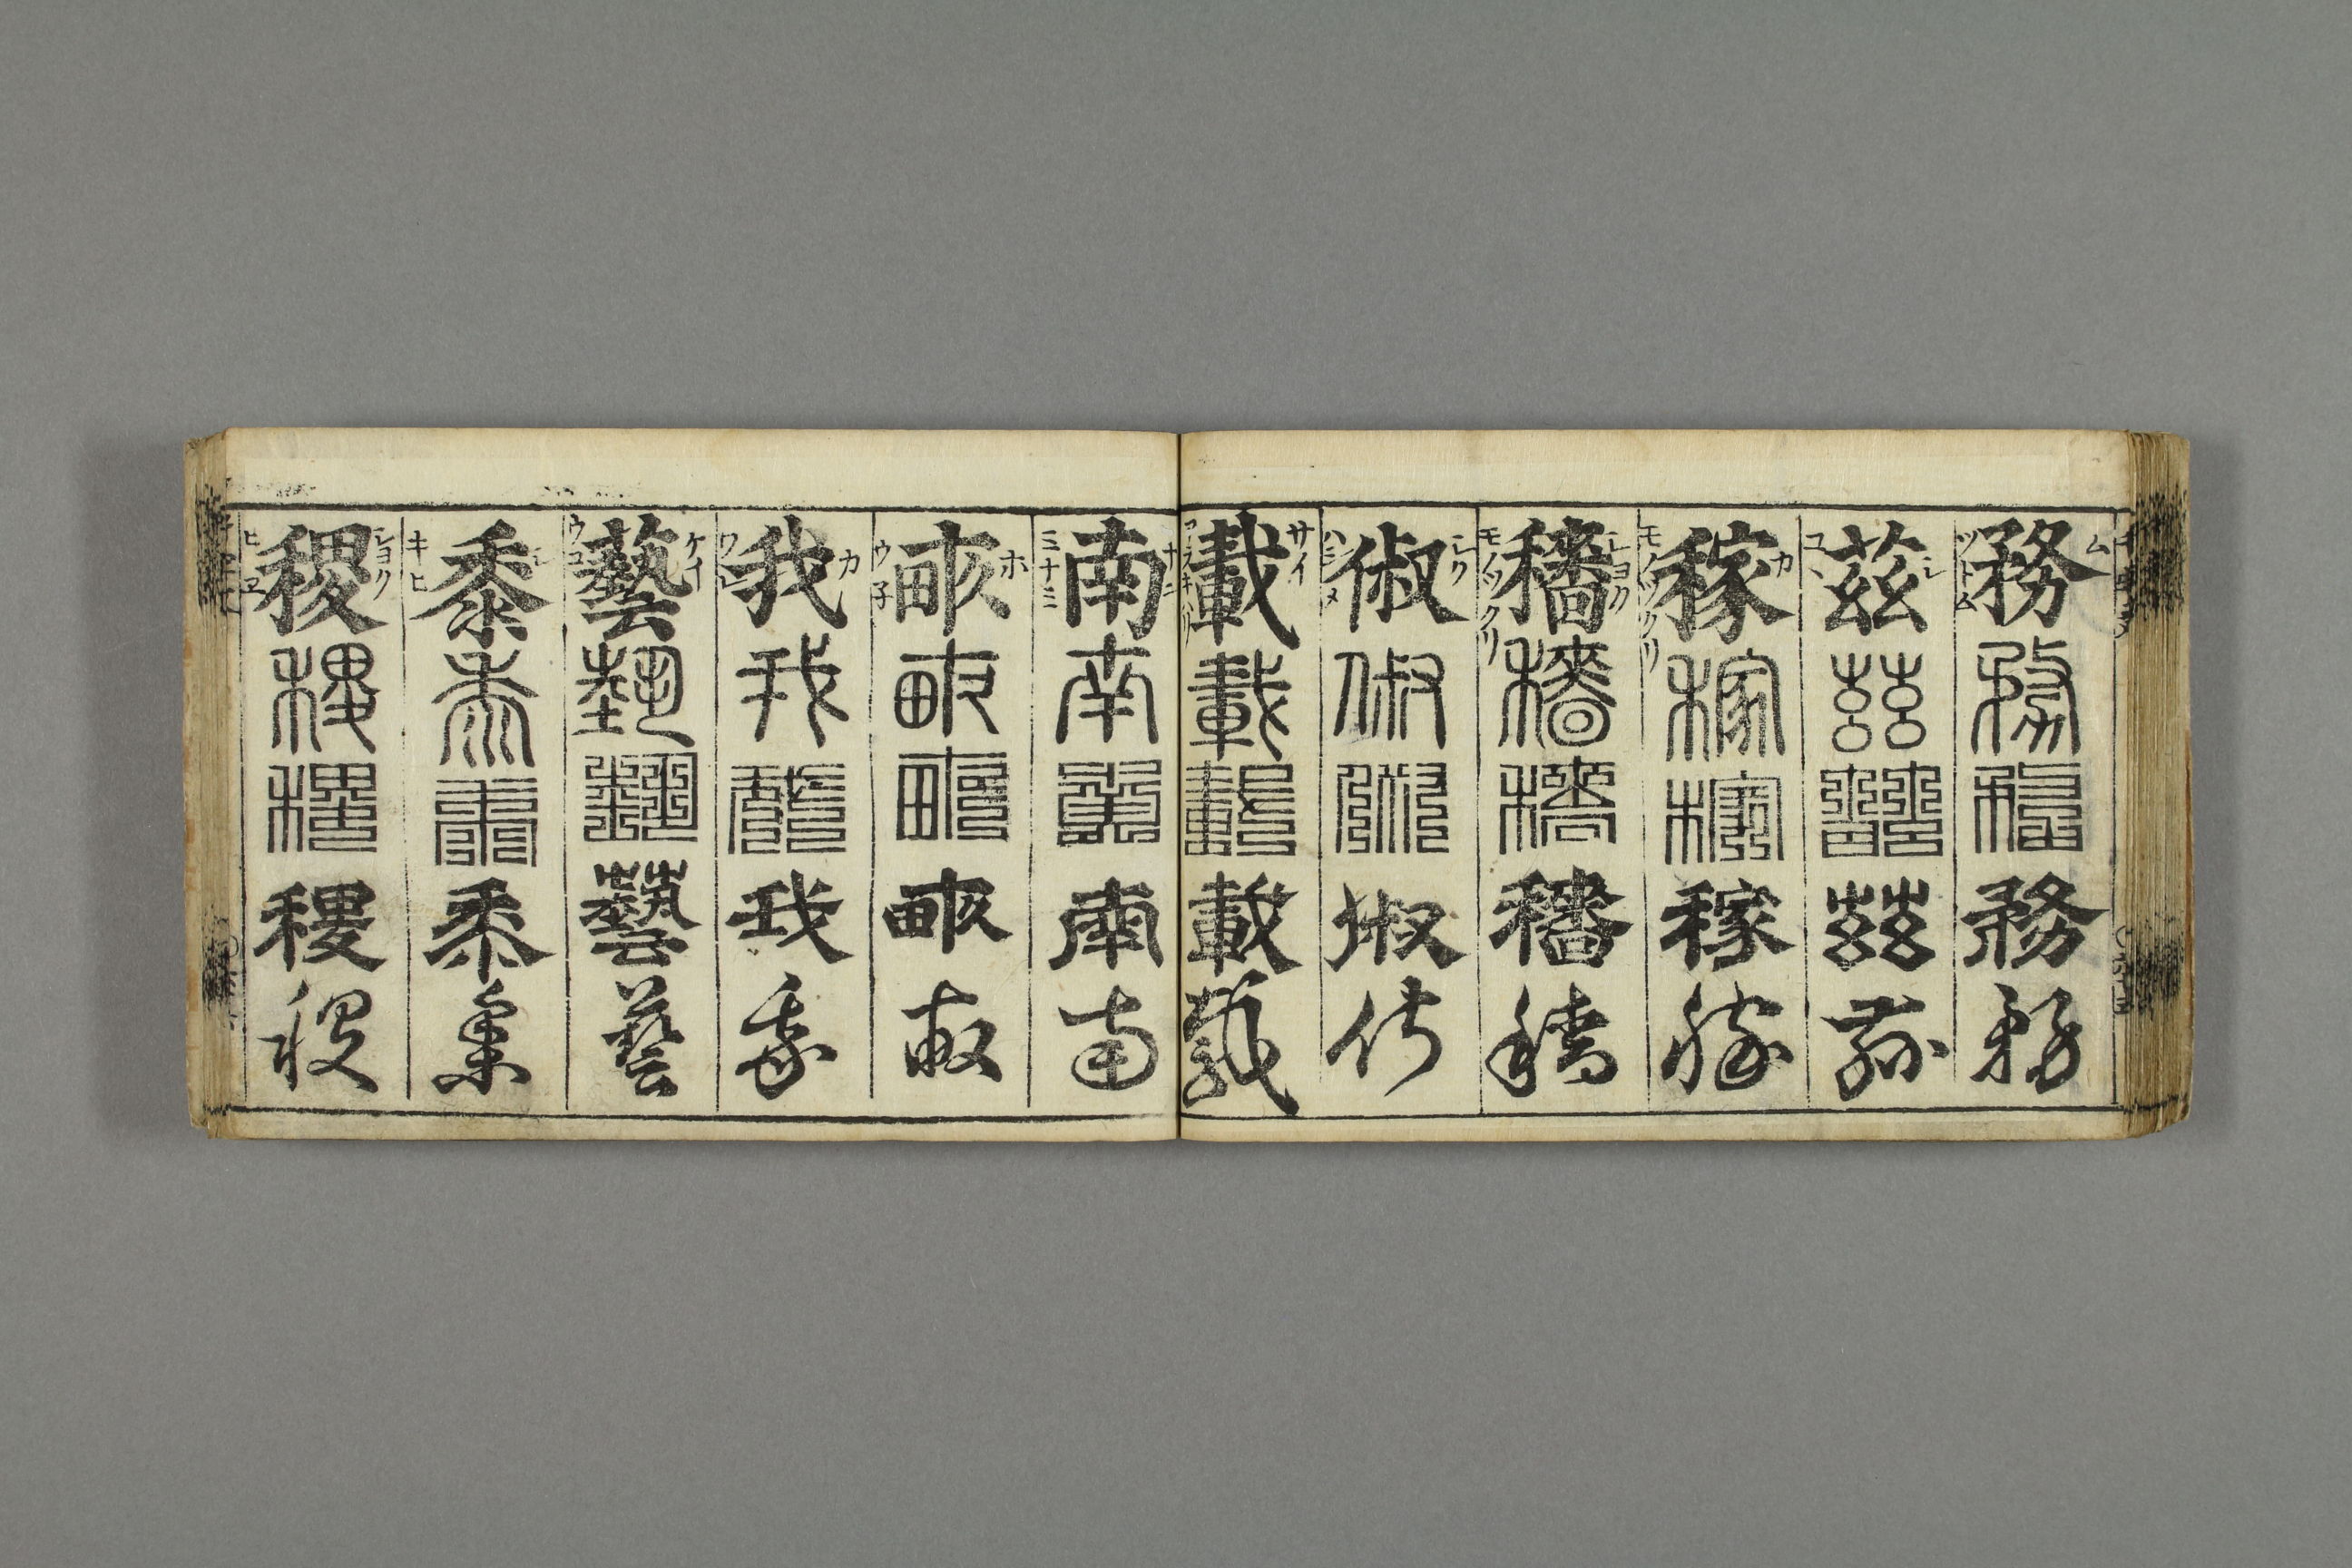 ム
務務務務務
ツトム
シ
茲茲茲茲茲
コヽ
カ
稼稼稼稼稼
モノツクリ
シヨク
穡穡穡穡穡
モノツクリ
シク
俶俶俶俶俶
ハシメ
サイ
載載載載載
ナン
南南南南南
ミナミ
ホ
畝畝畝畝畝
ウ子
カ
我我我我我
ワレ
ケイ
藝藝藝藝藝
ウユ
黍黍黍黍黍
キヒ
シヨク
稷稷稷稷稷
ヒヱ